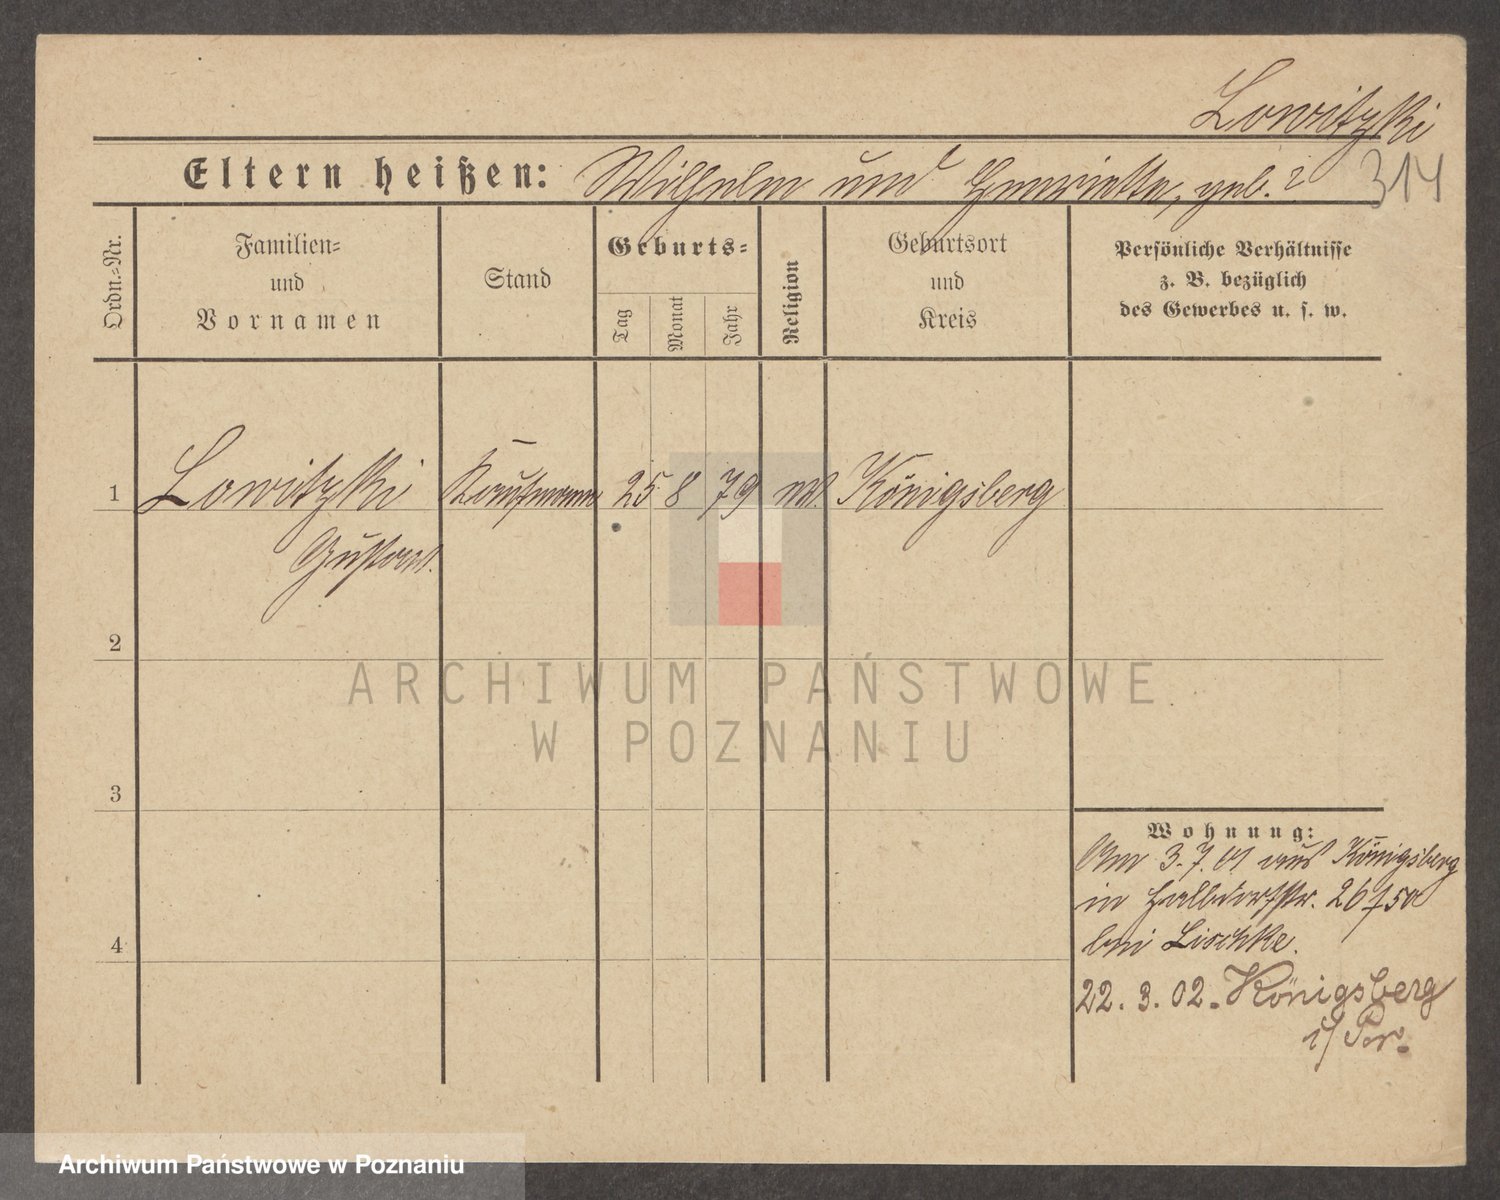 Lowitzki
Eltern heißen: Wilhelm und Henriette, geb. ?
314
Ordn.-Nr.
Familien-
und
Vornamen
Stand
Geburts-
Tag
Monat
Jahr
Religion
Geburtsort
und
Kreis
Persönliche Verhältnisse
z. B. bezüglich
des Gewerbes u. s. w.
1 Lowitzki Kaufmann 25 8 79 Königsberg
Gustav.
2
ARCHIWUM PAŃSTWOWE
W POZNANIU
3
Wohnung:
Am 3.7.01 aus Königsberg
in Halbdorfstr. 26
bei Lischke.
4
22. 3. 02. Königsberg
i/ Pr.
Archiwum Państwowe w Poznaniu